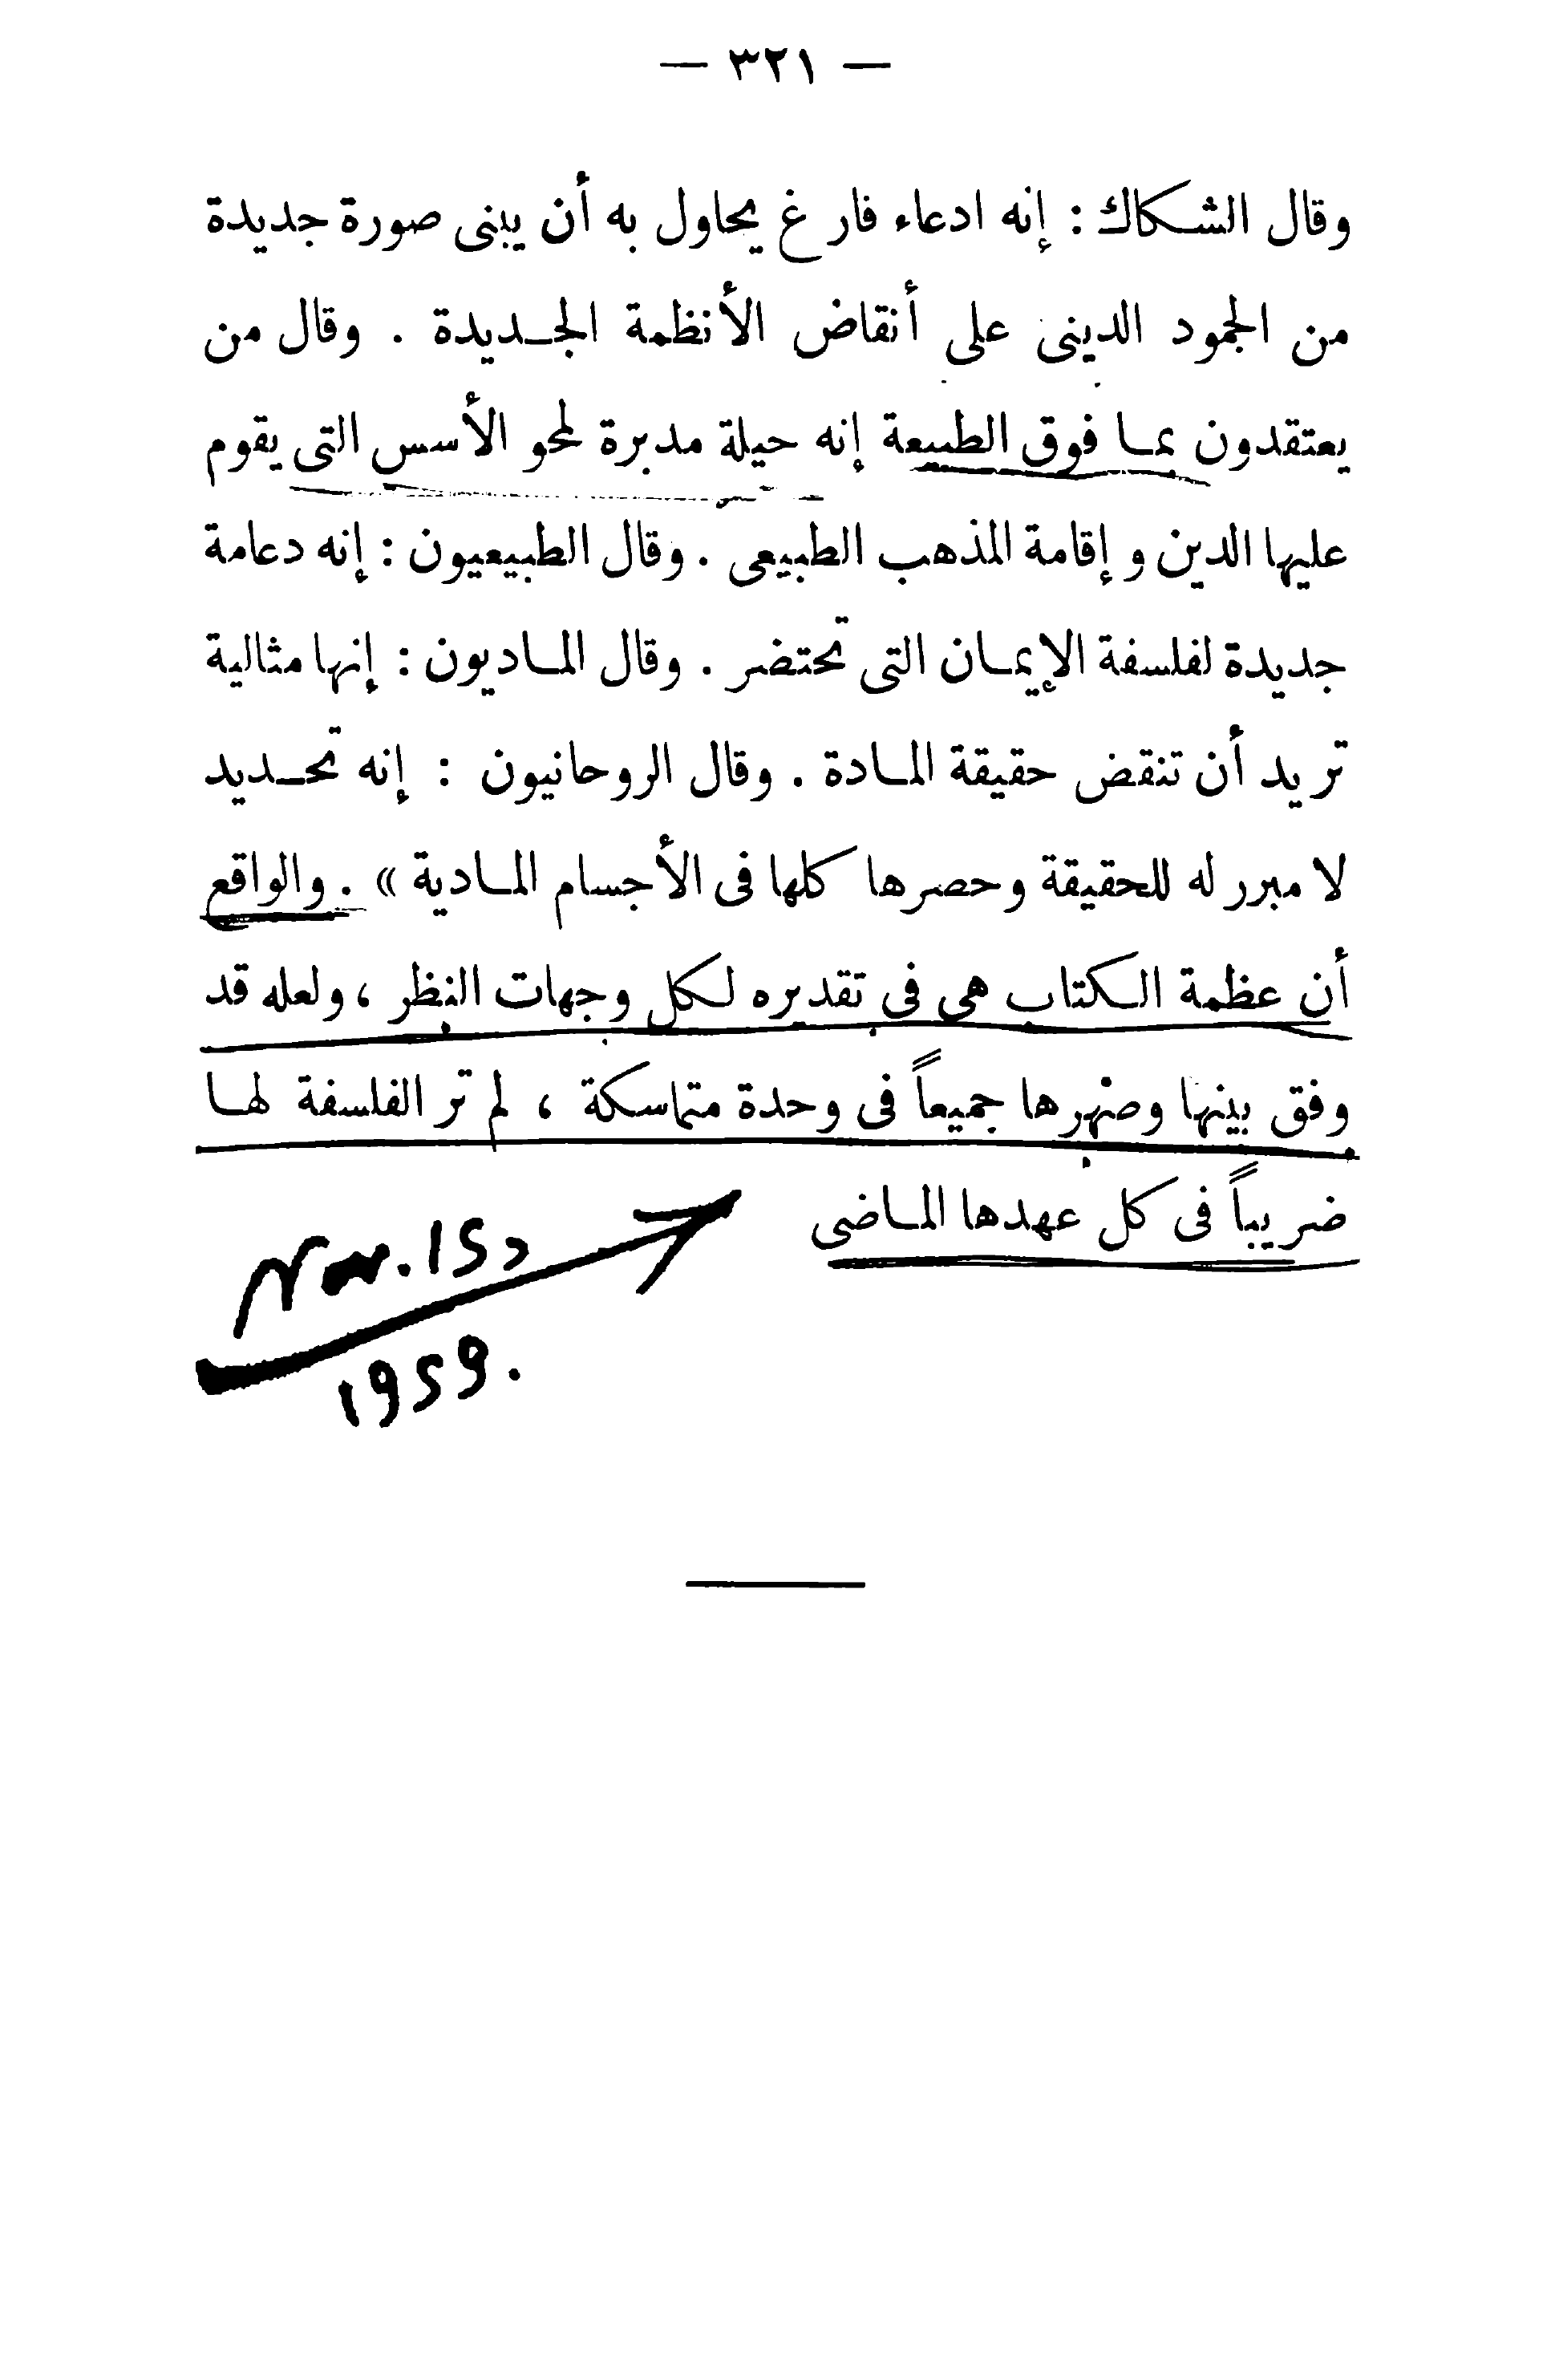 — ٣٢١ —
وقال الشكاك : إنه ادعاء فارغ يحاول به أن يبنى صورة جديدة
من الجمود الدينى على أنقاض الأنظمة الجديدة . وقال من
يعتقدون بما فوق الطبيعة إنه حيلة مدبرة لمحو الأسس التى يقوم
عليها الدين وإقامة المذهب الطبيعى . وقال الطبيعيون : إنه دعامة
جديدة لفلسفة الإيمان التى تحتضر . وقال الماديون : إنها مثالية
تريد أن تنقض حقيقة المادة . وقال الروحانيون : إنه تحديد
لا مبرر له للحقيقة وحصرها كلها فى الأجسام المادية » . والواقع
أن عظمة الكتاب هى فى تقديره لكل وجهات النظر ، ولعله قد
وفق بينها وصهرها جميعاً فى وحدة متماسكة ، لم تر الفلسفة لها
ضريباً فى كل عهدها الماضى
Nov. 15,
1959.